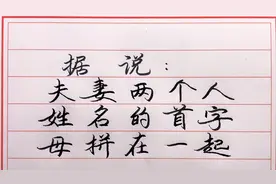 据说：
夫妻两个人
姓名的首字
母拼在一起